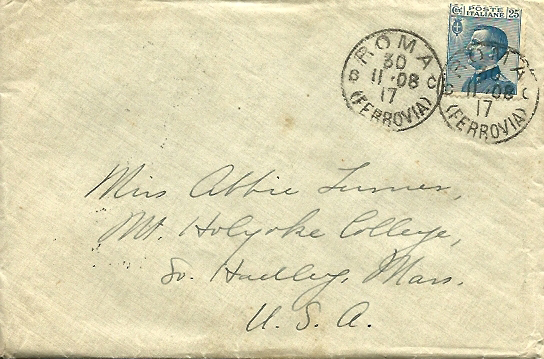 POSTE
ITALIANE 25
ROMA
30
11·08
17
(FERROVIA)
ROMA
30
11·08
17
(FERROVIA)
Miss Abbie Turner,
Mt. Holyoke College,
So. Hadley, Mass.
U. S. A.